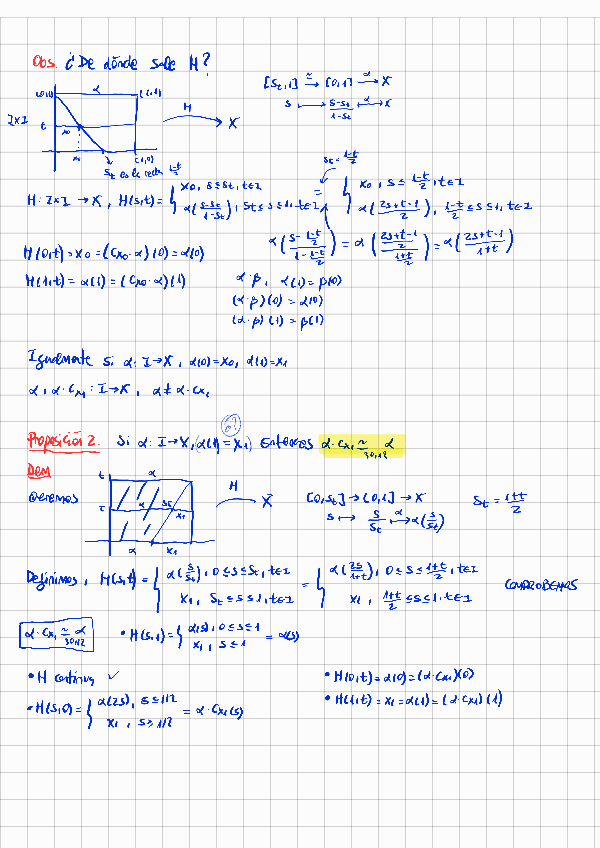 Obs. ¿De dónde sale H?
[St,1] ≃→ [0,1] α→ X
s ↦ (s-st)/(1-st) α→ X
(0,1) α (1,1)
I×I t x0 H → X
x0 (1,0)
St es la recta (1-t)/2
St = (1-t)/2
H: I×I → X, H(s,t) = { x0, s ≤ st, t∈I = { x0, s ≤ (1-t)/2, t∈I
α((s-st)/(1-st)), st ≤ s ≤ 1, t∈I α((2s+t-1)/2), (1-t)/2 ≤ s ≤ 1, t∈I
α((s-(1-t)/2)/(1-(1-t)/2)) = α(((2s+t-1)/2)/((1+t)/2)) = α((2s+t-1)/(1+t))
H(0,t) = x0 = (Cx0·α)(0) = α(0)
H(1,t) = α(1) = (Cx0·α)(1)
α·β, α(1) = β(0)
(α·β)(0) = α(0)
(α·β)(1) = β(1)
Igualmente si α: I→X, α(0)=x0, α(1)=x1
α, α·Cx1: I→X, α ≠ α·Cx1
Proposición 2. Si α: I→X, (α(1) = x1) Entonces α·Cx1 ≃{0,1} α
Dem
Queremos
t α H → X
τ α St x1
α x1
[0,St] → [0,1] → X
s ↦ s/St α↦ α(s/St)
St = (1+t)/2
Definimos, H(s,t) = { α(s/St), 0 ≤ s ≤ St, t∈I = { α(2s/(1+t)), 0 ≤ s ≤ (1+t)/2, t∈I
x1, St ≤ s ≤ 1, t∈I x1, (1+t)/2 ≤ s ≤ 1, t∈I
COMPROBEMOS
α·Cx1 ≃{0,1} α
• H(s,1) = { α(s), 0 ≤ s ≤ 1
x1, s ≤ 1 = α(s)
• H continua ✓
• H(s,0) = { α(2s), s ≤ 1/2
x1, s ≥ 1/2 = α·Cx1(s)
• H(0,t) = α(0) = (α·Cx1)(0)
• H(1,t) = x1 = α(1) = (α·Cx1)(1)